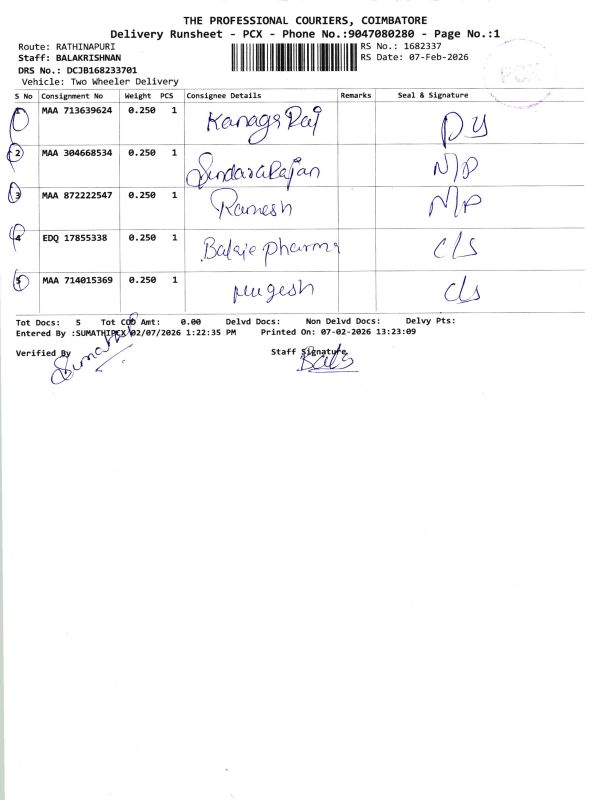 THE PROFESSIONAL COURIERS, COIMBATORE
Delivery Runsheet - PCX - Phone No.:9047080280 - Page No.:1
Route: RATHINAPURI
RS No.: 1682337
Staff: BALAKRISHNAN
RS Date: 07-Feb-2026
DRS No.: DCJB168233701
Vehicle: Two Wheeler Delivery
PCX
S No Consignment No Weight PCS Consignee Details Remarks Seal & Signature
1 MAA 713639624 0.250 1 Kanaga Raj
2 MAA 304668534 0.250 1 Sundararajan N/P
3 MAA 872222547 0.250 1 Ramesh N/P
4 EDQ 17855338 0.250 1 Balaje pharma C/s
5 MAA 714015369 0.250 1 Mugesh C/s
Tot Docs: 5 Tot COD Amt: 0.00 Delvd Docs: Non Delvd Docs: Delvy Pts:
Entered By :SUMATHIPCX 02/07/2026 1:22:35 PM Printed On: 07-02-2026 13:23:09
Verified By Staff Signature
Sumathi